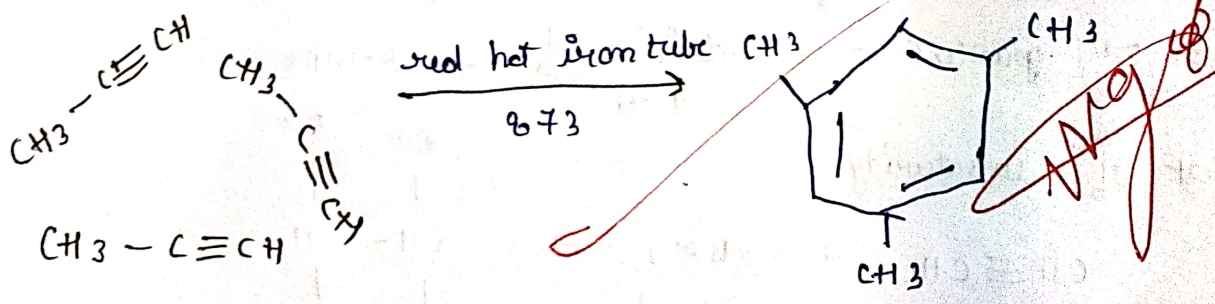 CH3 - C≡CH
CH3 - C≡CH
CH3 - C≡CH
red hot iron tube
873
CH3
CH3
CH3